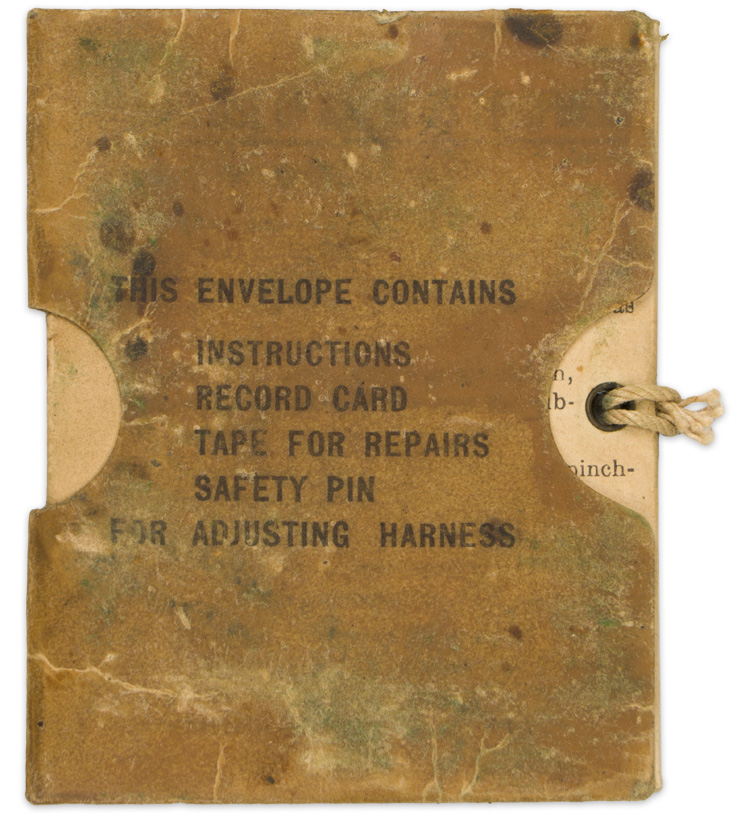 THIS ENVELOPE CONTAINS
INSTRUCTIONS
RECORD CARD
TAPE FOR REPAIRS
SAFETY PIN
FOR ADJUSTING HARNESS
n,
b-
pinch-